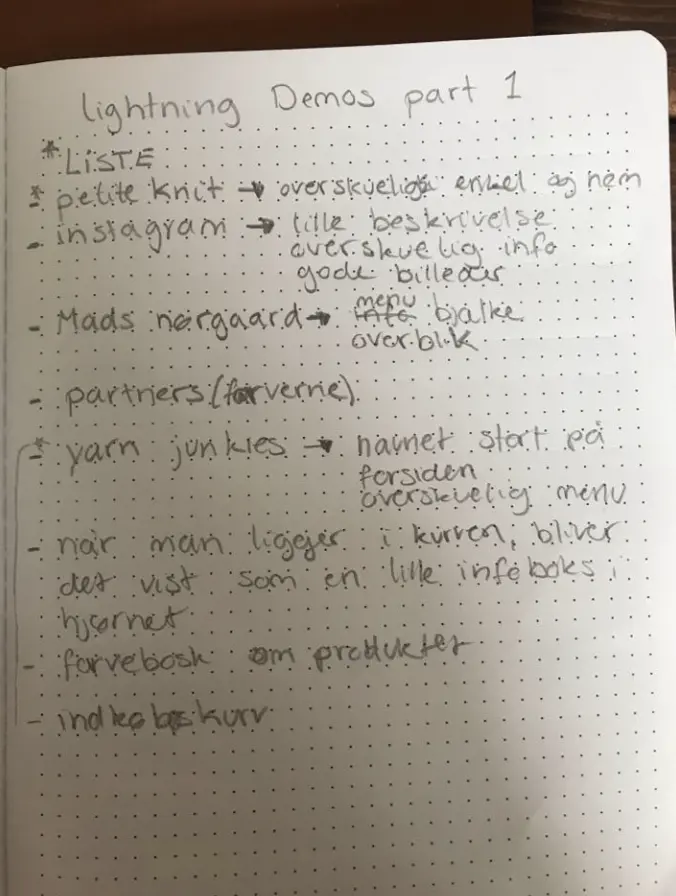 lightning Demos part 1
* LISTE
* petite knit → overskuelig enkel og nem
- instagram → lille beskrivelse
overskuelig info
gode billeder
- Mads nørgaard → menu bjälke
overblik
- partners (farverne)
* yarn junkies → navnet stort på
forsiden
overskuelig menu
- når man ligger i kurven, bliver
det vist som en lille infoboks i
hjørnet
- om produktet
- indkøbskurv